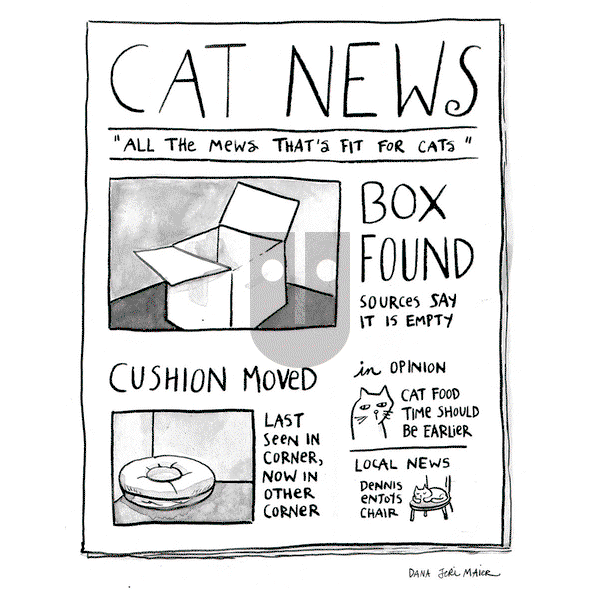 CAT NEWS
"ALL THE MEWS THAT'S FIT FOR CATS"
BOX
FOUND
SOURCES SAY
IT IS EMPTY
CUSHION MOVED
LAST
SEEN IN
CORNER,
NOW IN
OTHER
CORNER
in OPINION
CAT FOOD
TIME SHOULD
BE EARLIER
LOCAL NEWS
DENNIS
ENJOYS
CHAIR
DANA JERI MAIER